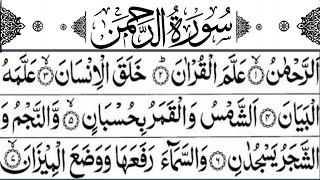 سُورَةُ الرَّحْمٰن
اَلرَّحْمٰنُ ۝١ عَلَّمَ الْقُرْاٰنَ ۝٢ خَلَقَ الْاِنْسَانَ ۝٣ عَلَّمَهُ
الْبَيَانَ ۝٤ اَلشَّمْسُ وَالْقَمَرُ بِحُسْبَانٍ ۝٥ وَّالنَّجْمُ وَ
الشَّجَرُ يَسْجُدٰنِ ۝٦ وَالسَّمَآءَ رَفَعَهَا وَوَضَعَ الْمِيْزَانَ ۝٧